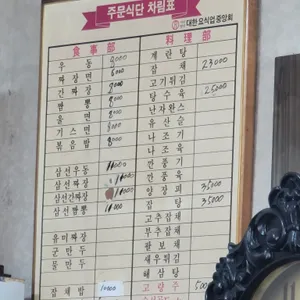 주문식단 차림표
대한 요식업 중앙회
食事部
우동 8000
짜장면 6000
간짜장 8000
짬뽕 8000
울면 8000
기스면 8000
볶음밥 8000
삼선우동 11000
삼선짜장 11000
삼선간짜장 11000
삼선짬뽕 11000
유미짜장
군만두
물만두
잡채밥 10000
料理部
계란탕
잡채 23000
고기튀김
탕수육 25000
난자완스
유산슬
라조기
라조육
깐풍기
깐풍육
양장피 35000
잡탕 35000
고추잡채
부추잡채
팔보채
새우튀김
해삼탕
고량주